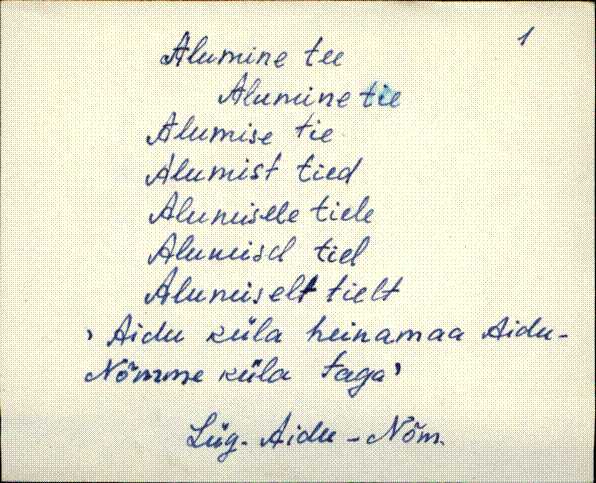 1
Alumine tee
Alumine tie
Alumise tie
Alumist tied
Alumisele tiele
Alumisel tiel
Alumiselt tielt
› Aidu küla heinamaa Aidu-
Nõmme küla taga ›
Lüg. Aidu - Nõm.